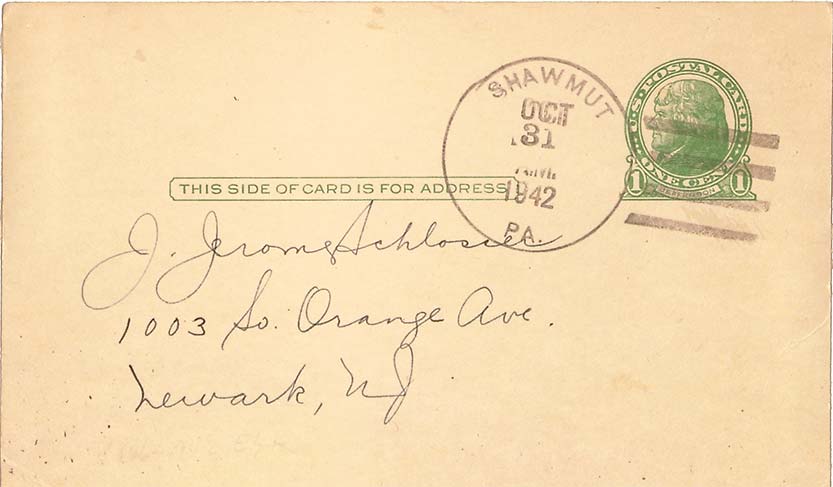 SHAWMUT
OCT
31
A.M.
1942
PA.
U.S. POSTAL CARD
ONE CENT
1 JEFFERSON 1
THIS SIDE OF CARD IS FOR ADDRESS
J. Jerome Schlosser
1003 So. Orange Ave.
Newark, NJ